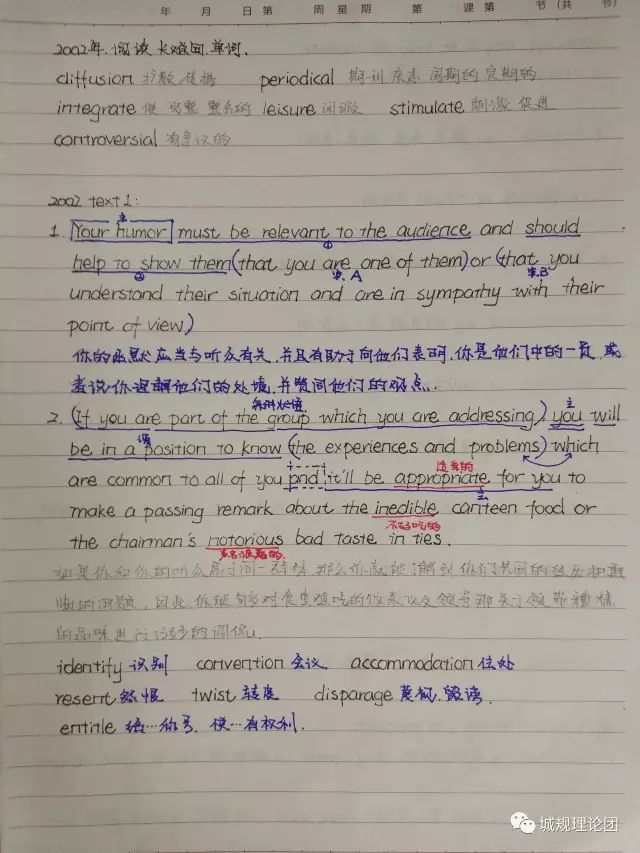 年 月 日 第 周 星 期 第 课 第 节 (共 节)
2002年. 阅读 长难句. 单词.
diffusion 扩散 传播 periodical 期刊 杂志 周期的 定期的
integrate 使 完整 整合的 leisure 闲暇 stimulate 刺激 促进
controversial 有争议的
2002 text 1:
主
1. Your humor must be relevant to the audience and should
①
help to show them (that you are one of them) or (that you
② 宾.A 宾.B
understand their situation and are in sympathy with their
point of view.)
你的幽默应当与听众有关, 并且有助于向他们表明, 你是他们中的一员, 或
者说你理解他们的处境, 并赞同他们的观点.
条件状语 主
2. (If you are part of the group which you are addressing,) you will
谓
be in a position to know (the experiences and problems) which
适当的
are common to all of you and it'll be appropriate for you to
主
make a passing remark about the inedible canteen food or
不好吃的
the chairman's notorious bad taste in ties.
臭名很题的.
如果你和你的听众属于同一群体 那么你就能了解到你们共同的经历和
的问题, 因此你能够对食堂难吃的饭菜以及领导那关于领带糟糕
的品味进行
identify 识别 convention 会议 accommodation 住处
resent 怨恨 twist 转度 disparage 蔑视. 毁谤.
entitle 给…称号. 使…有权利.
城规理论团